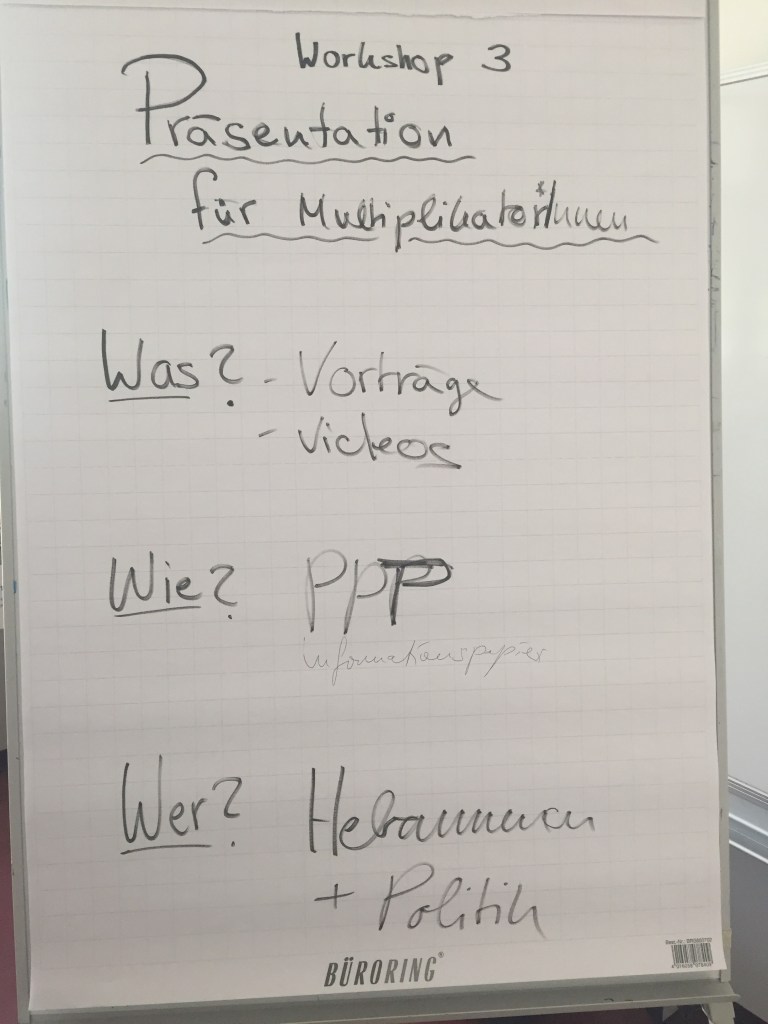 Workshop 3
Präsentation
für Multiplikator*Innen
Was? - Vorträge
- Videos
Wie? PPP
Informationspapier
Wer? Hebammen
+ Politik
BÜRORING®